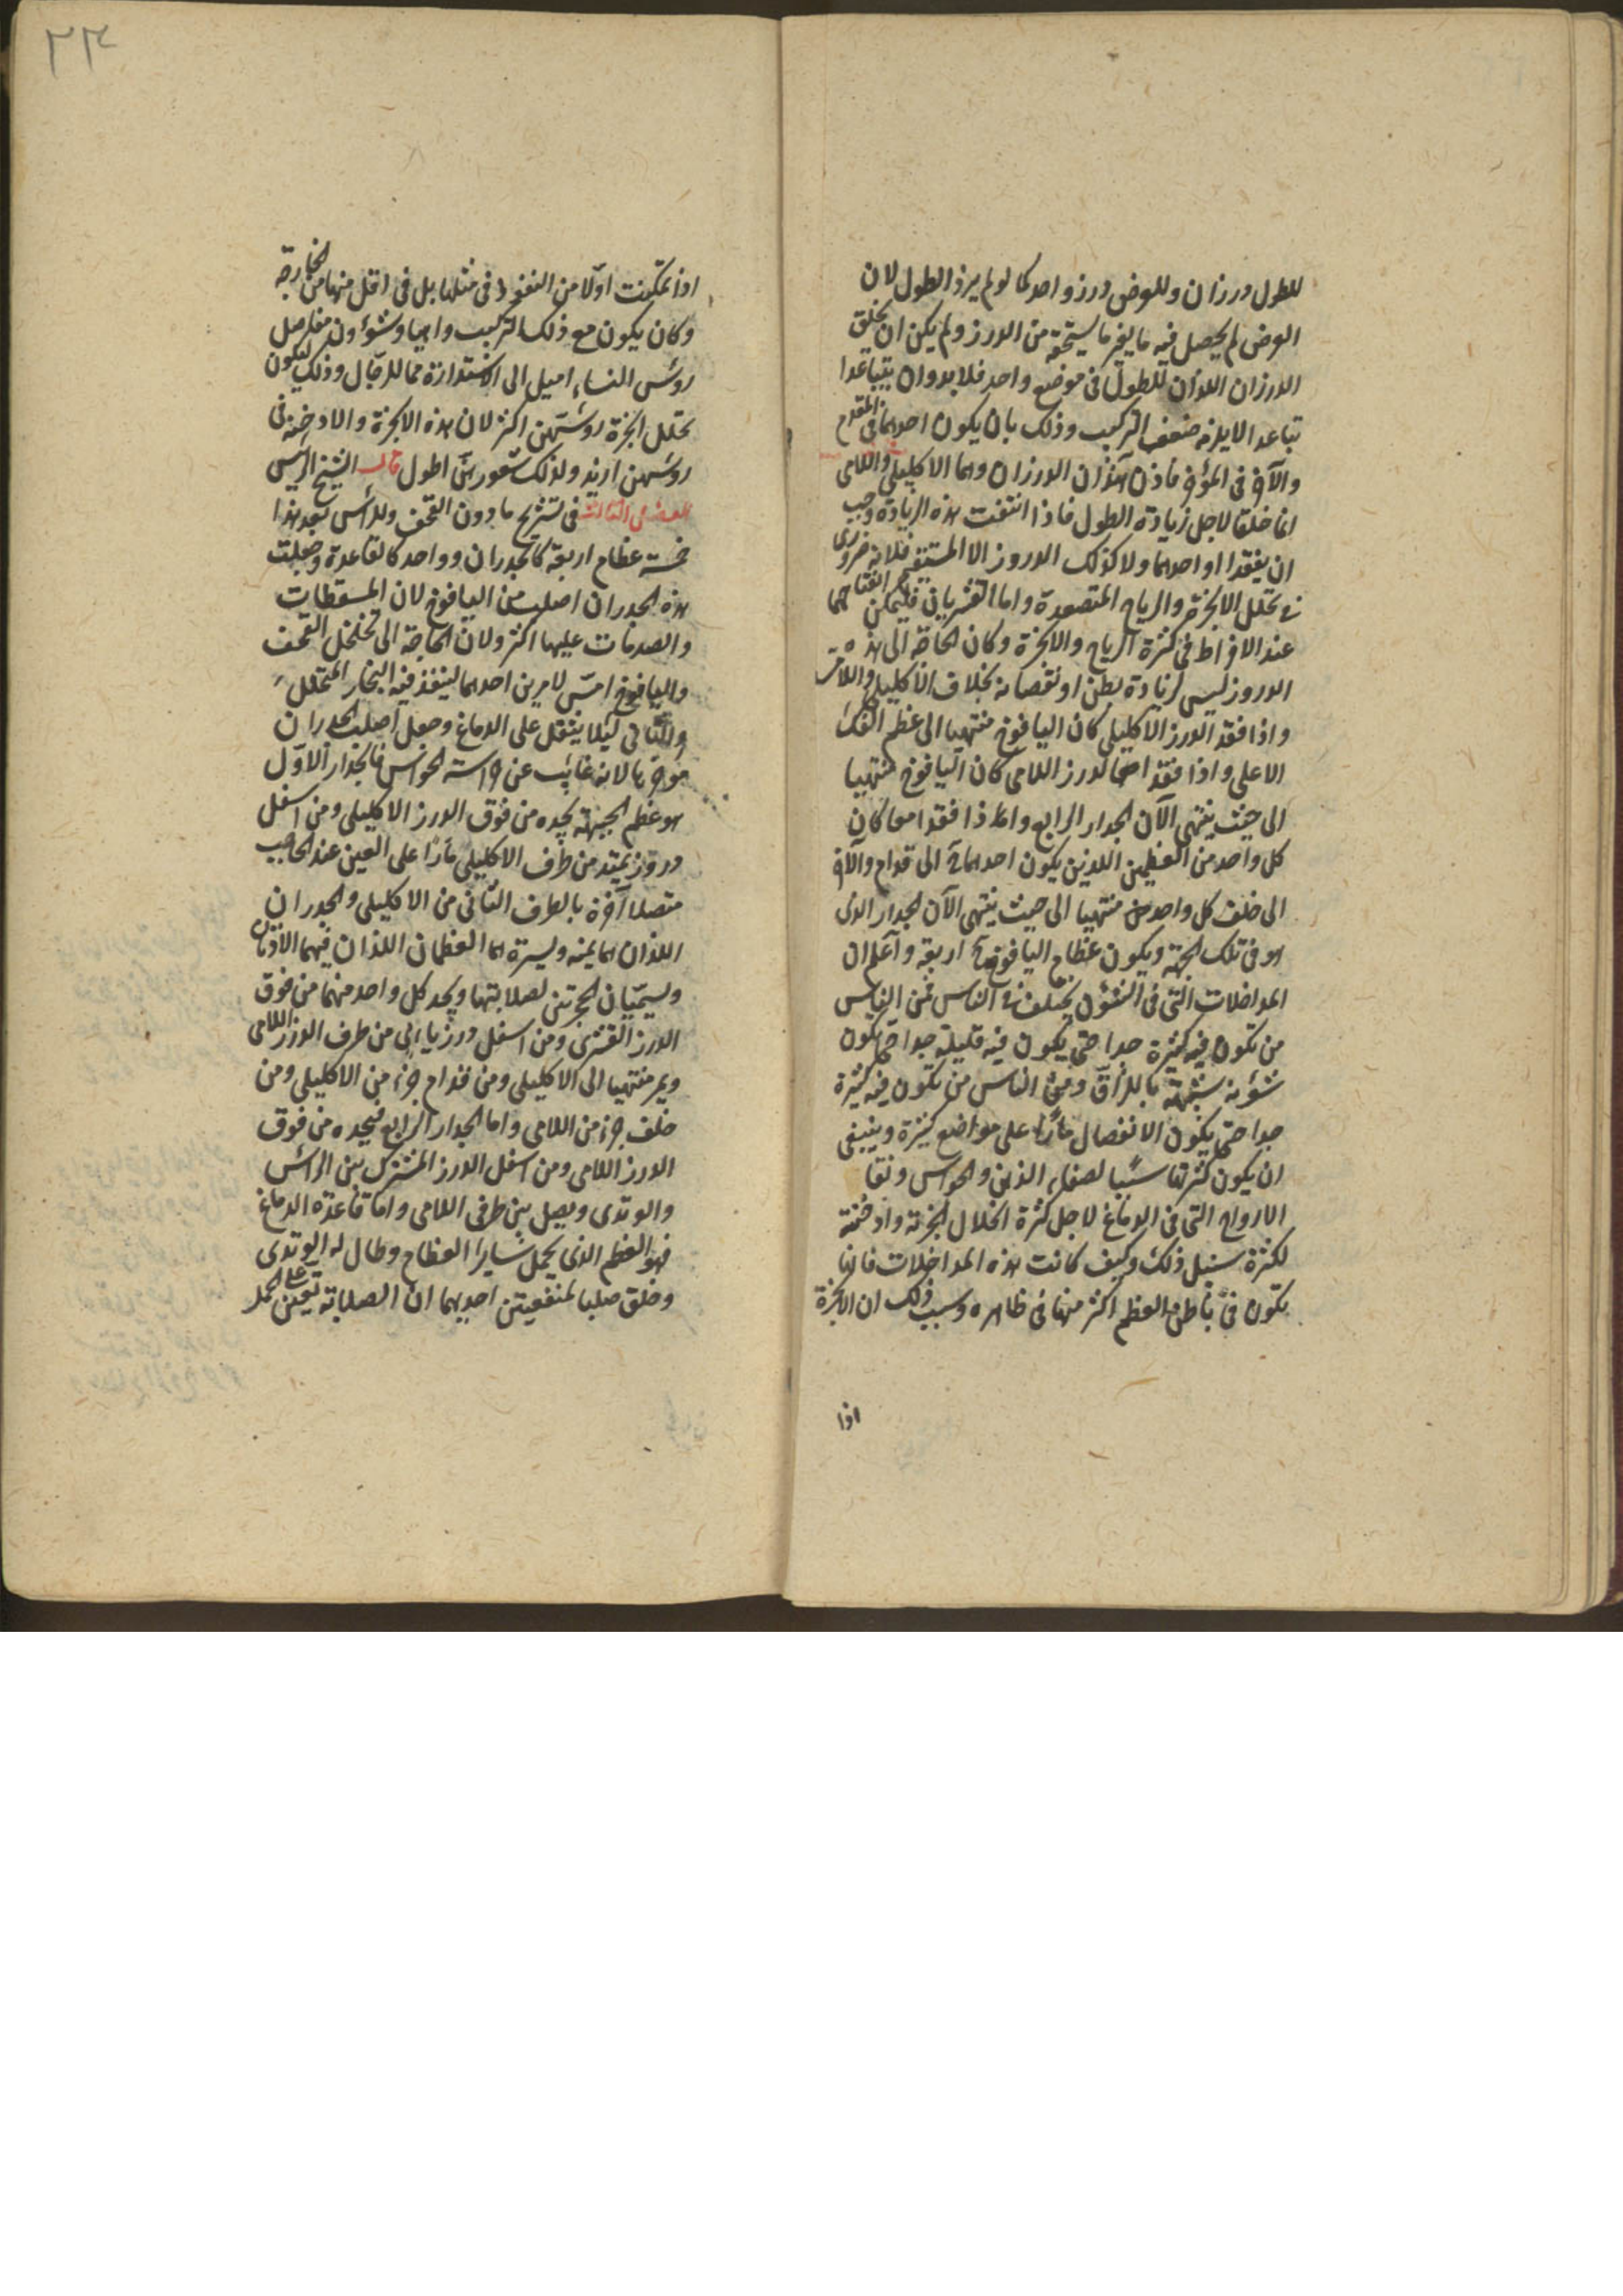 للطول درزان وللعرض درز واحد كما لو لم يزد الطول لان
العرض لم يحصل فيه ما يغير ما يستحقه من الدرز ولم يكن ان يخلق
الدرزان اللذان للطول في موضع واحد فلابد وان يتباعدا
تباعدا لا يلزمه ضعف التركيب وذلك بان يكون احدهما في المقدم
والآخر في المؤخر فاذن هذان الدرزان وهما الاكليلي واللامي
انما خلقا لاجل زيادة الطول فاذا انتفت هذه الزيادة وجب
ان يفقدا او احدهما ولا كذلك الدروز الا المستقيم فلانه ضروري
في تحلل الابخرة والرياح المتصعدة واما القشريان فليمكن انفتاحهما
عند الافراط في كثرة الرياح والابخرة وكان الحاجة الى هذه
الدروز ليس لزيادة بطن او نقصانه بخلاف الاكليلي واللامي
واذا فقد الدرز الاكليلي كان اليافوخ منتهيا الى عظم الفك
الاعلى واذا فقد الدرز اللامي كان اليافوخ منتهيا
الى حيث ينتهي الآن الجدار الرابع واما اذا فقدا معا كان
كل واحد من العظمين اللذين يكون احدهما الى قدام والآخر
الى خلف كل واحد منتهيا الى حيث ينتهي الآن الجدار الذي
هو في تلك الجهة ويكون عظام اليافوخ اربعة واعلم ان
المداخلات التي في الشؤن يختلف في الناس فمن الناس
من تكون فيه كثيرة جدا حتى يكون فيه قليلة جدا حتى يكون
شؤنه شبيهة بالملزاق ومن الناس من تكون فيه كثيرة
جدا حتى يكون الانفصال مارا على مواضع كثيرة وينبغي
ان يكون كثرتها سببا لصفاء الذهن والحواس ونقا
الارواح التي في الدماغ لاجل كثرة انحلال ابخرته وادخنته
لكثرة سبيل ذلك وكيف كانت هذه المداخلات فانها
تكون في باطن العظم اكثر منها في ظاهره وسبب ذلك ان الابخرة
اذا
٢٣
اذا تمكنت اولا من النفوذ في مثلها بل في اقل منها من الخارجة
وكان يكون مع ذلك التركيب واهيا وشؤون مفاصل
رؤس النساء اميل الى الاستدارة مما للرجال وذلك ليكون
تحلل ابخرة رؤسهن اكثر لان هذه الابخرة والادخنة في
رؤسهن ازيد ولذلك شعورهن اطول قال الشيخ الرئيس
الفصل الثالث في تشريح ما دون القحف وللرأس بعد هذا
خمسة عظام اربعة كالجدران وواحد كالقاعدة وجعلت
هذه الجدران اصلب من اليافوخ لان السقطات
والصدمات عليها اكثر ولان الحاجة الى تخلخل القحف
واليافوخ امس لامرين احدهما لينفذ فيه البخار المتحلل
والثاني لئلا يثقل على الدماغ وجعل اصلب الجدران
مؤخرها لانه غائب عن حراسة الحواس فالجدار الاول
هو عظم الجبهة يحده من فوق الدرز الاكليلي ومن اسفل
دروز يمتد من طرف الاكليلي مارا على العين عند الحاجب
متصلا آخره بالطرف الثاني من الاكليلي والجدران
اللذان هما يمنه ويسره هما العظمان اللذان فيهما الاذنان
ويسميان الحجريين لصلابتهما ويحد كل واحد منهما من فوق
الدرز القشري ومن اسفل درز ياتي من طرف الدرز اللامي
ويمر منتهيا الى الاكليلي ومن قدام جزء من الاكليلي ومن
خلف جزء من اللامي واما الجدار الرابع فيحده من فوق
الدرز اللامي ومن اسفل الدرز المشترك بين الرأس
والوتدي ويصل بين طرفي اللامي واما قاعدة الدماغ
فهو العظم الذي يحمل ساير العظام وطال له الوتدي
وخلق صلبا لمنفعتين احديهما ان الصلابة تعين على الحمل